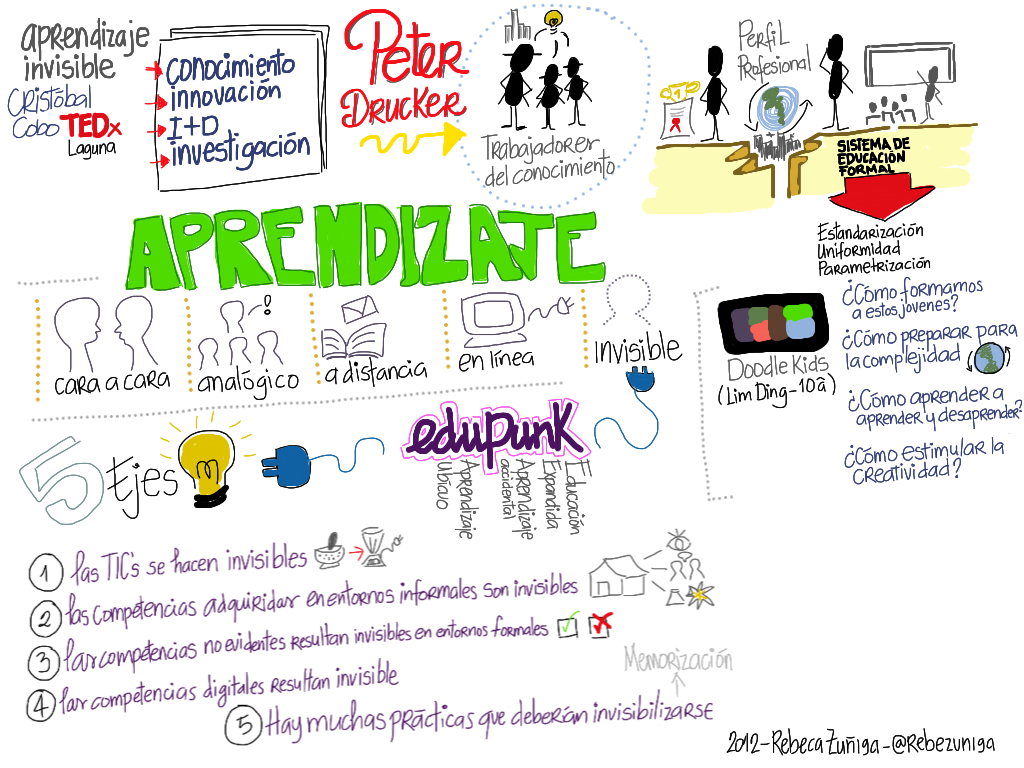 aprendizaje
invisible
Cristóbal
Cobo TEDx
Laguna
conocimiento
innovación
I+D
investigación
Peter
Drucker
Trabajadorer
del conocimiento
Perfil
Profesional
SISTEMA DE
EDUCACIÓN
FORMAL
Estandarización
Uniformidad
Parametrización
APRENDIZAJE
cara a cara
analógico
a distancia
en línea
Invisible
Doodle Kids
(Lim Ding-10ã)
¿Cómo formamos
a estos jovenes?
¿Cómo preparar para
la complejidad
¿Cómo aprender a
aprender y desaprender?
¿Cómo estimular la
creatividad?
5 Ejes
edupunk
Aprendizaje
Ubicuo
Aprendizaje
accidental
Educación
Expandida
1 las TIC's se hacen invisibles
2 las competencias adquiridar en entornos informales son invisibles
3 lar competencias no evidentes resultan invisibles en entornos formales
4 lar competencias digitales resultan invisible
Memorización
5 Hay muchas prácticas que deberían invisibilizarse
2012-Rebeca Zuñiga-@Rebezuniga